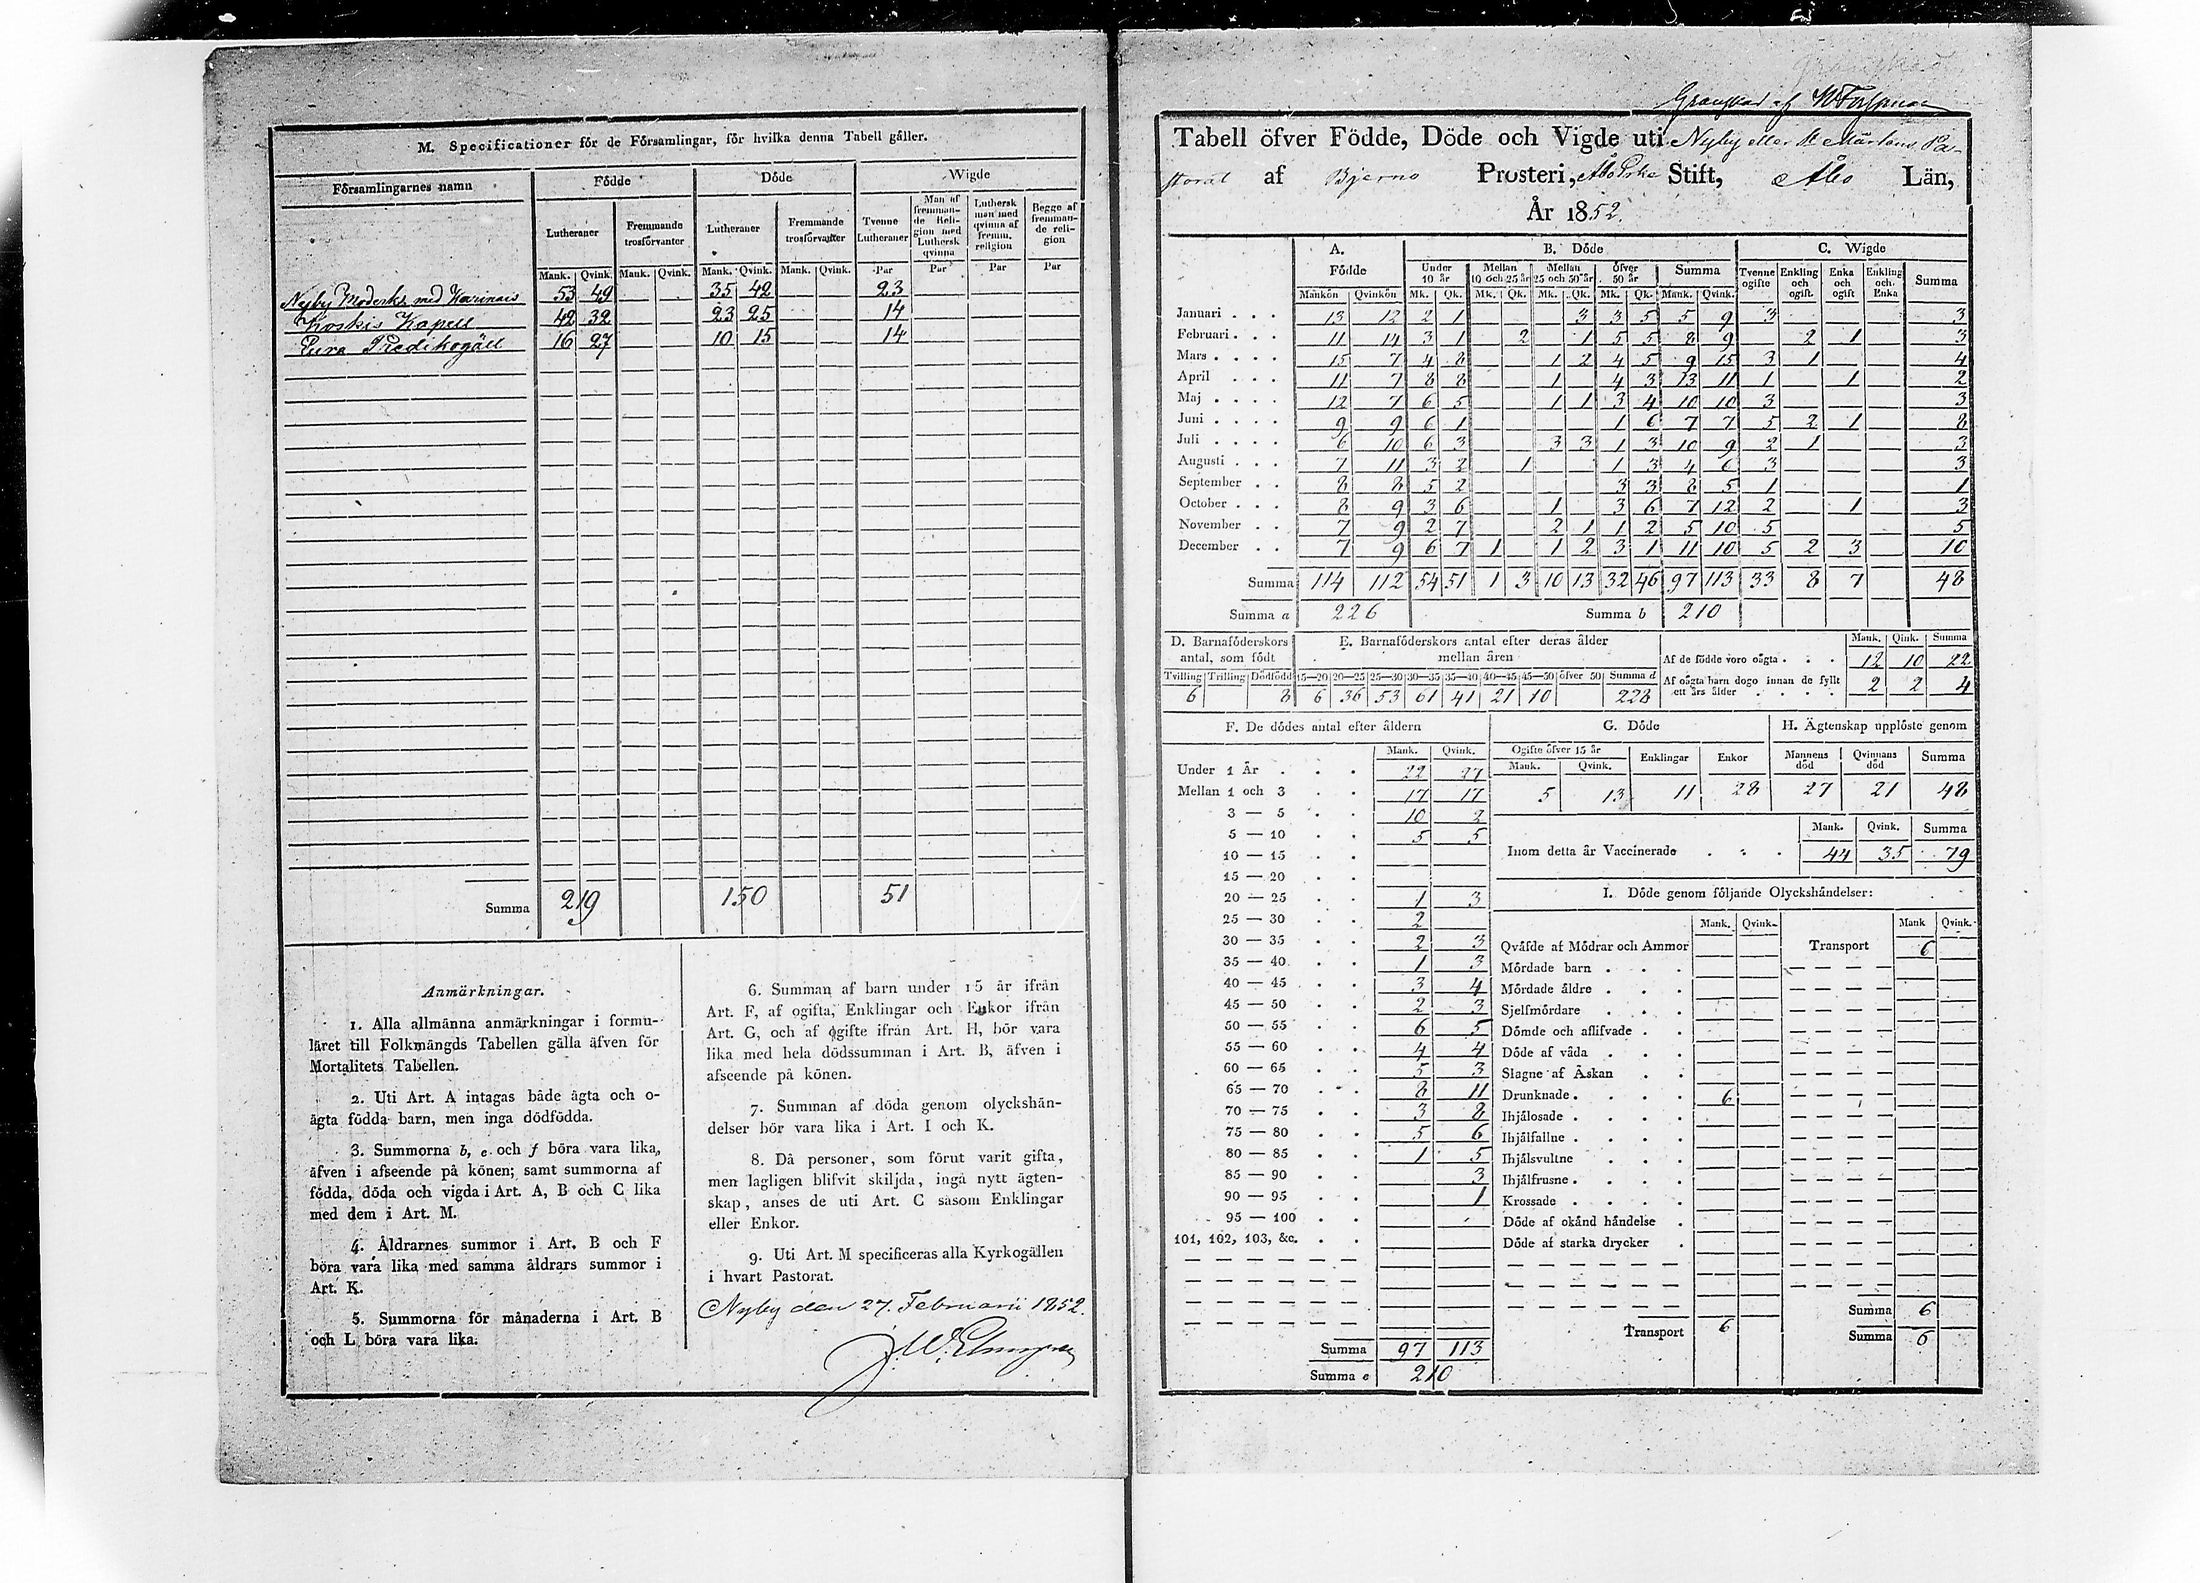 M. Specificationer för de Församlingar, för hvilka denna Tabell gäller.
Församlingarnes namn Födde Döde Wigde
Lutheraner Fremmande trosförvanter Lutheraner Fremmande trosförvanter Tvenne Lutheraner Man af fremmande Religion med Luthersk qvinna Luthersk man med qvinna af fremm. religion Begge af fremmande religion
Mank. Qvink. Mank. Qvink. Mank. Qvink. Mank. Qvink. Par Par Par Par
Nyby Moderk: med Karinais 53 49 35 42 23
Koskis Kapell 42 32 23 25 14
Pura Predikogäll 16 27 10 15 14
Summa 219 150 51
Anmärkningar.
1. Alla allmänna anmärkningar i formu-
läret till Folkmängds Tabellen gälla äfven för
Mortalitets Tabellen.
2. Uti Art. A intagas både ägta och o-
ägta födda barn, men inga dödfödda.
3. Summorna b, e och f böra vara lika,
äfven i afseende på könen; samt summorna af
födda, döda och vigda i Art. A, B och C lika
med dem i Art. M.
4. Åldrarnes summor i Art. B och F
böra vara lika med samma åldrars summor i
Art. K.
5. Summorna för månaderna i Art. B
och L böra vara lika.
6. Summan af barn under 15 år ifrån
Art. F, af ogifta, Enklingar och Enkor ifrån
Art. G, och af gifte ifrån Art. H, bör vara
lika med hela dödssumman i Art. B, äfven i
afseende på könen.
7. Summan af döda genom olyckshän-
delser bör vara lika i Art. I och K.
8. Då personer, som förut varit gifta,
men lagligen blifvit skiljda, ingå nytt ägten-
skap, anses de uti Art. C såsom Enklingar
eller Enkor.
9. Uti Art. M specificeras alla Kyrkogällen
i hvart Pastorat.
Nyby den 27. Februarii 1852.
Granskad af
Tabell öfver Födde, Döde och Vigde uti Nyby eller St Mårtens Pa-
storat af Bjerno Prosteri, Åbo Stift, Åbo Län,
År 1852.
A. Födde B. Döde C. Wigde
Under 10 år Mellan 10 och 25 år Mellan 25 och 50 år öfver 50 år Summa Tvenne ogifte Enkling och ogift. Enka och ogift Enkling och Enka Summa
Mankön Qvinkön Mk. Qk. Mk. Qk. Mk. Qk. Mk. Qk. Mank. Qvink.
Januari 13 12 2 1 3 3 5 5 9 3 3
Februari 11 14 3 1 2 1 5 5 8 9 2 1 3
Mars 15 7 4 8 1 2 4 5 9 15 3 1 4
April 11 7 8 8 1 4 3 13 11 1 1 2
Maj 12 7 6 5 1 1 3 4 10 10 3 3
Juni 9 9 6 1 1 6 7 7 5 2 1 8
Juli 6 10 6 3 3 3 1 3 10 9 2 1 3
Augusti 7 11 3 2 1 1 3 4 6 3 3
September 8 8 5 2 3 3 8 5 1 1
October 8 9 3 6 1 3 6 7 12 2 1 3
November 7 9 2 7 2 1 1 2 5 10 5 5
December 7 9 6 7 1 1 2 3 1 11 10 5 2 3 10
Summa 114 112 54 51 1 3 10 13 32 46 97 113 33 8 7 48
Summa a 226 Summa b 210
D. Barnaföderskors antal, som födt
Tvilling Trilling Dödfödd
6 8
E. Barnaföderskors antal efter deras ålder mellan åren
15—20 20—25 25—30 30—35 35—40 40—45 45—50 öfver 50 Summa d
6 36 53 61 41 21 10 228
Mank. Qink. Summa
Af de födde voro oägta 12 10 22
Af oägta barn dogo innan de fyllt ett års ålder 2 2 4
F. De dödes antal efter åldern
Mank. Qvink.
Under 1 År 22 27
Mellan 1 och 3 17 17
3 — 5 10 2
5 — 10 5 5
10 — 15
15 — 20
20 — 25 1 3
25 — 30 2
30 — 35 2 3
35 — 40 1 3
40 — 45 3 4
45 — 50 2 3
50 — 55 6 5
55 — 60 4 4
60 — 65 5 3
65 — 70 8 11
70 — 75 3 8
75 — 80 5 6
80 — 85 1 5
85 — 90 3
90 — 95 1
95 — 100
101, 102, 103, &c.
Summa 97 113
Summa e 210
G. Döde
Ogifte öfver 15 år Enklingar Enkor
Mank. Qvink.
5 13 11 28
H. Ägtenskap upplöste genom
Mannens död Qvinnans död Summa
27 21 48
Mank. Qvink. Summa
Inom detta år Vaccinerade 44 35 79
I. Döde genom följande Olyckshändelser:
Mank. Qvink. Mank Qvink.
Qväfde af Mödrar och Ammor Transport 6
Mördade barn
Mördade äldre
Sjelfmördare
Dömde och aflifvade
Döde af våda
Slagne af Åskan
Drunknade 6
Ihjälosade
Ihjälfallne
Ihjälsvultne
Ihjälfrusne
Krossade
Döde af okänd händelse
Döde af starka drycker
Summa 6
Transport 6 Summa 6